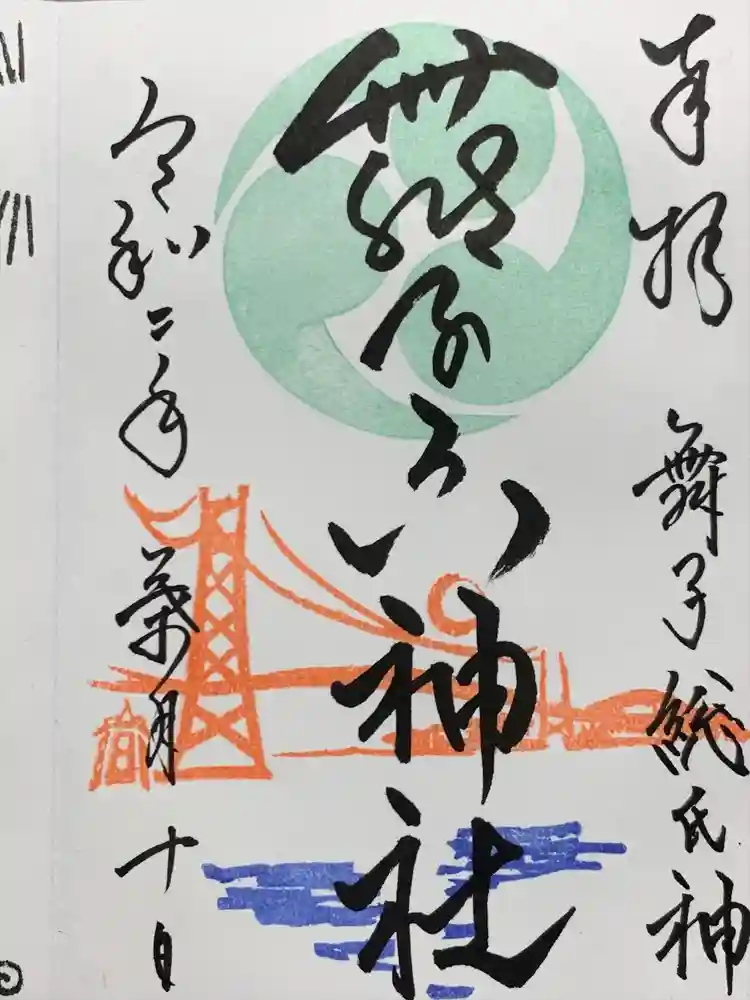 奉拝
舞子総氏神
舞子六神社
令和二年
葉月
十日